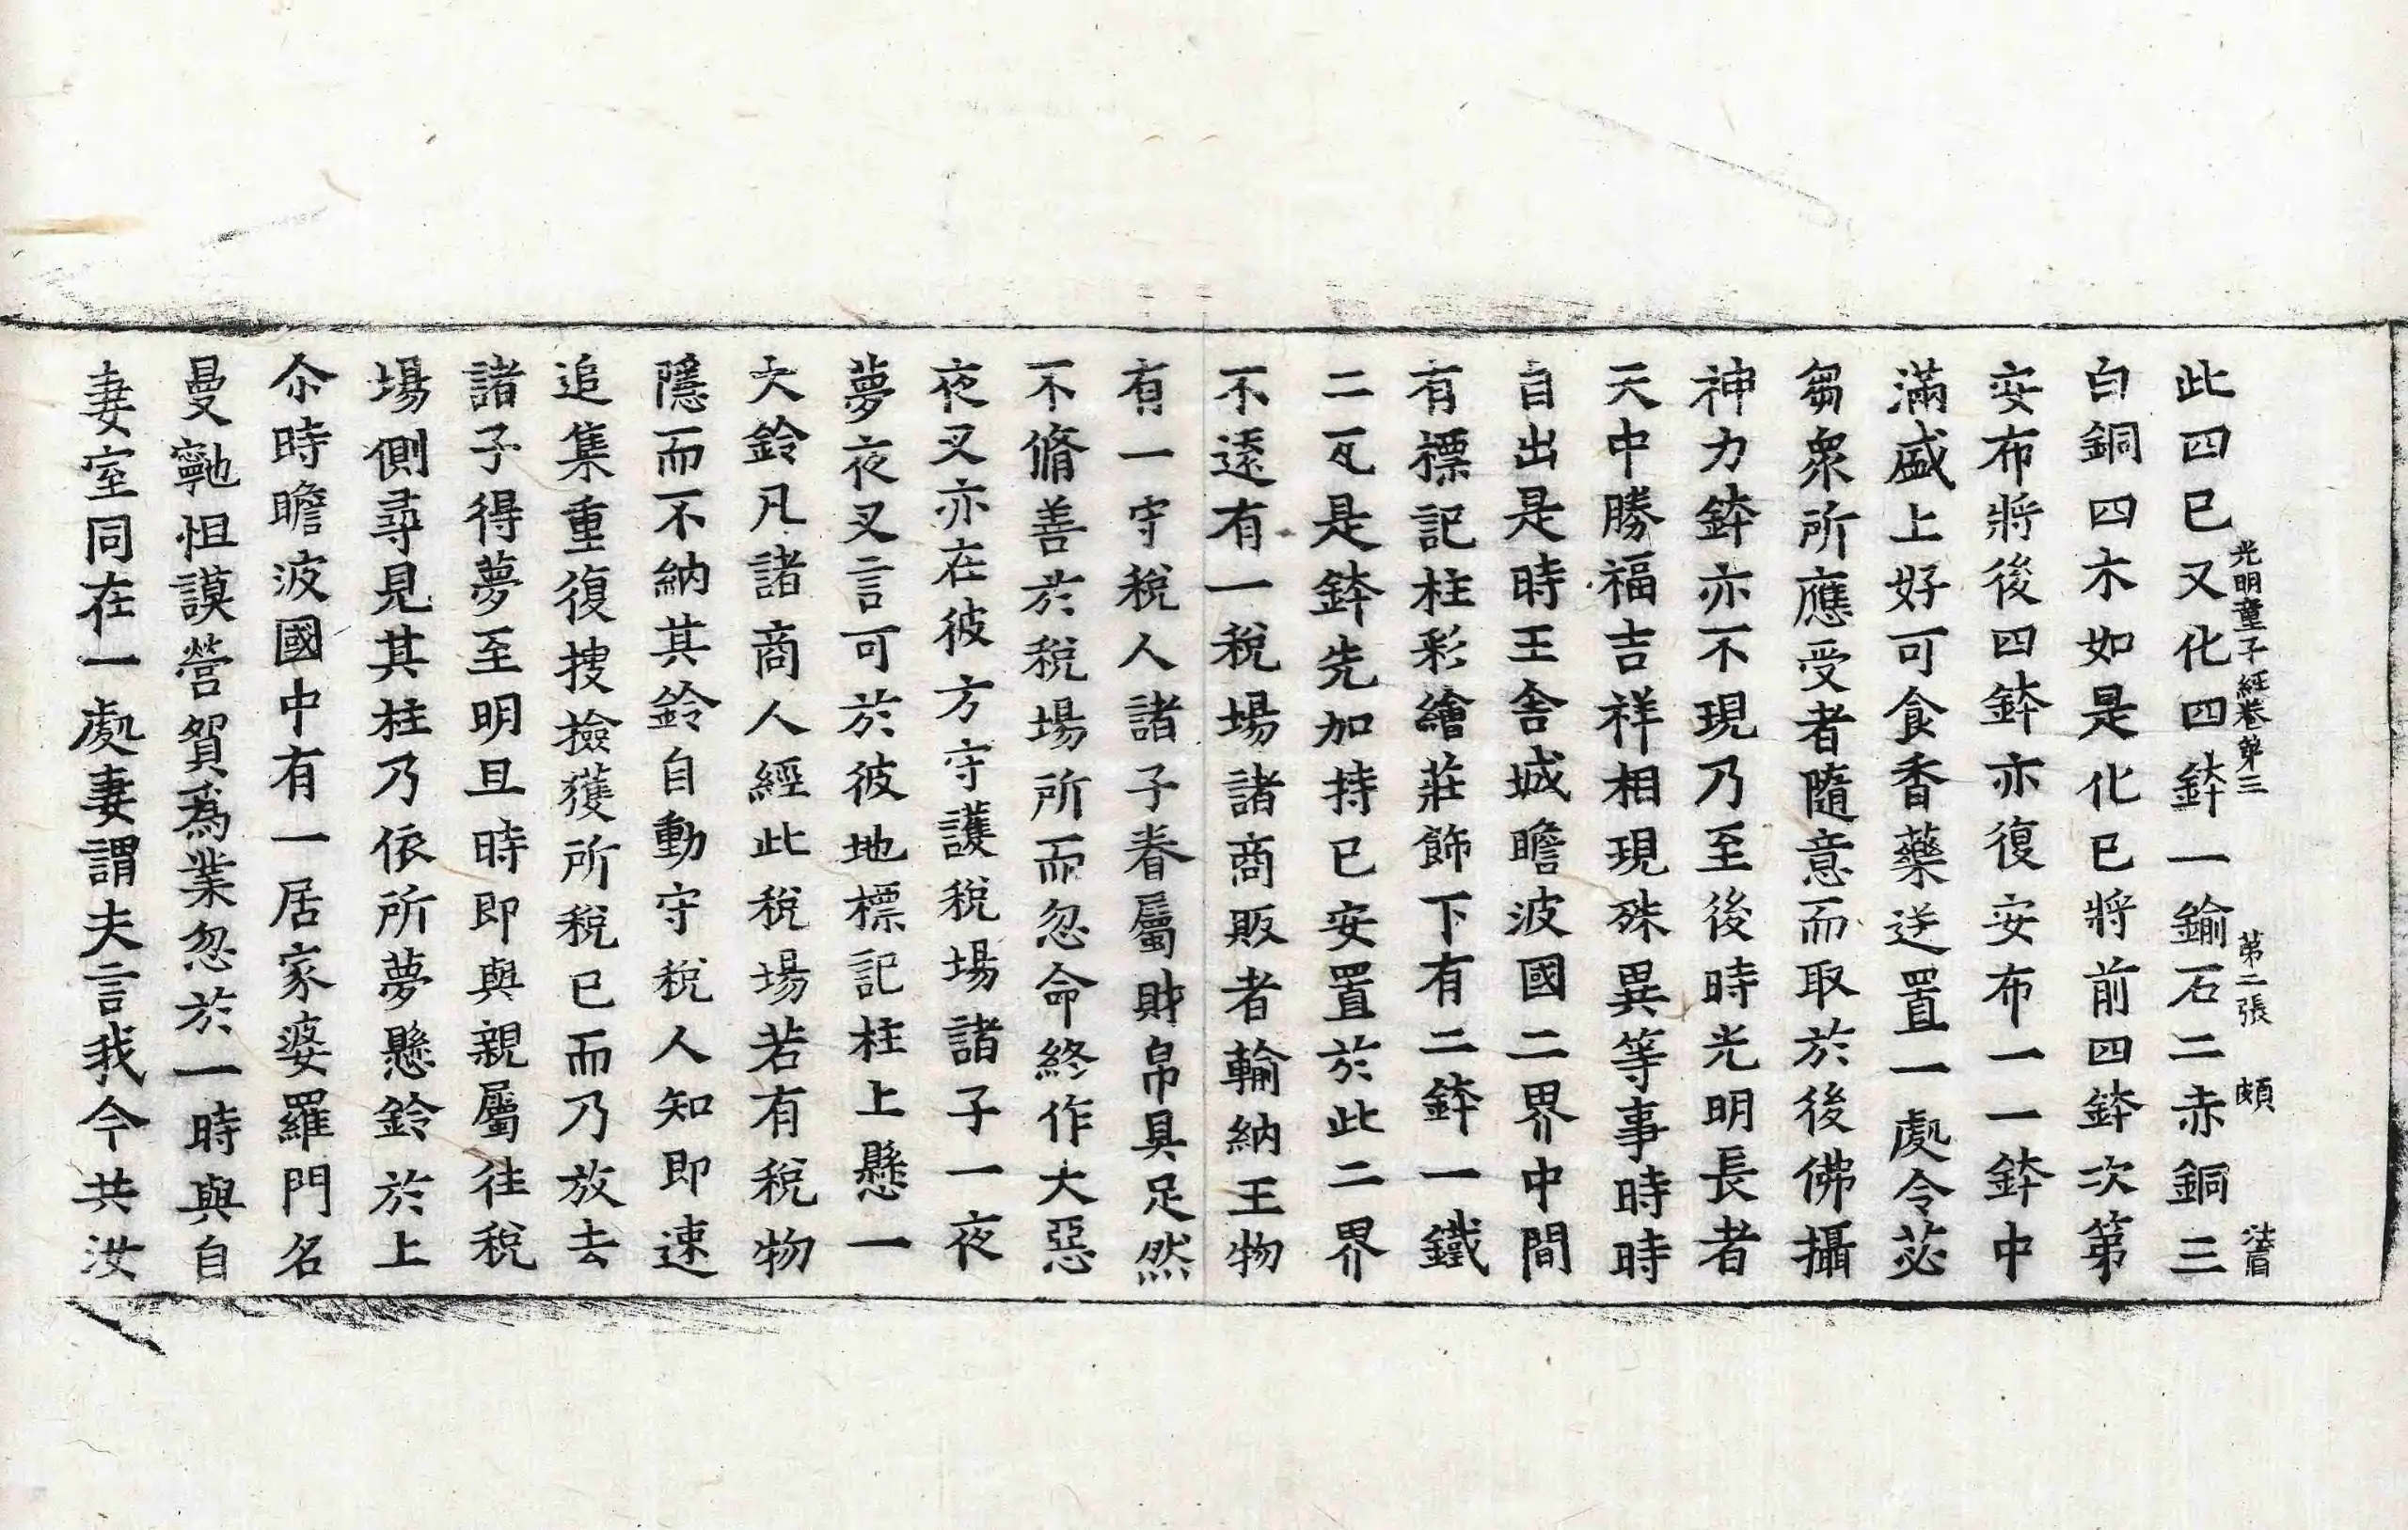 光明童子經卷第三 第二張 頗 法眉
此四已又化四鉢一鍮石二赤銅三
白銅四木如是化已將前四鉢次第
安布將後四鉢亦復安布一一鉢中
滿盛上好可食香藥送置一處令苾
芻衆所應受者隨意而取於後佛攝
神力鉢亦不現乃至後時光明長者
天中勝福吉祥相現殊異等事時時
自出是時王舍城瞻波國二界中間
有標記柱彩繪莊飾下有二鉢一鐵
二瓦是鉢先加持已安置於此二界
不遠有一稅場諸商販者輸納王物
有一守稅人諸子眷屬財帛具足然
不脩善於稅場所而忽命終作大惡
夜叉亦在彼方守護稅場諸子一夜
夢夜叉言可於彼地標記柱上懸一
大鈴凡諸商人經此稅場若有稅物
隱而不納其鈴自動守稅人知即速
追集重復搜撿獲所稅已而乃放去
諸子得夢至明旦時即與親屬往稅
場側尋見其柱乃依所夢懸鈴於上
尒時瞻波國中有一居家婆羅門名
曼䩜怛謨營貿為業忽於一時與自
妻室同在一處妻謂夫言我今共汝